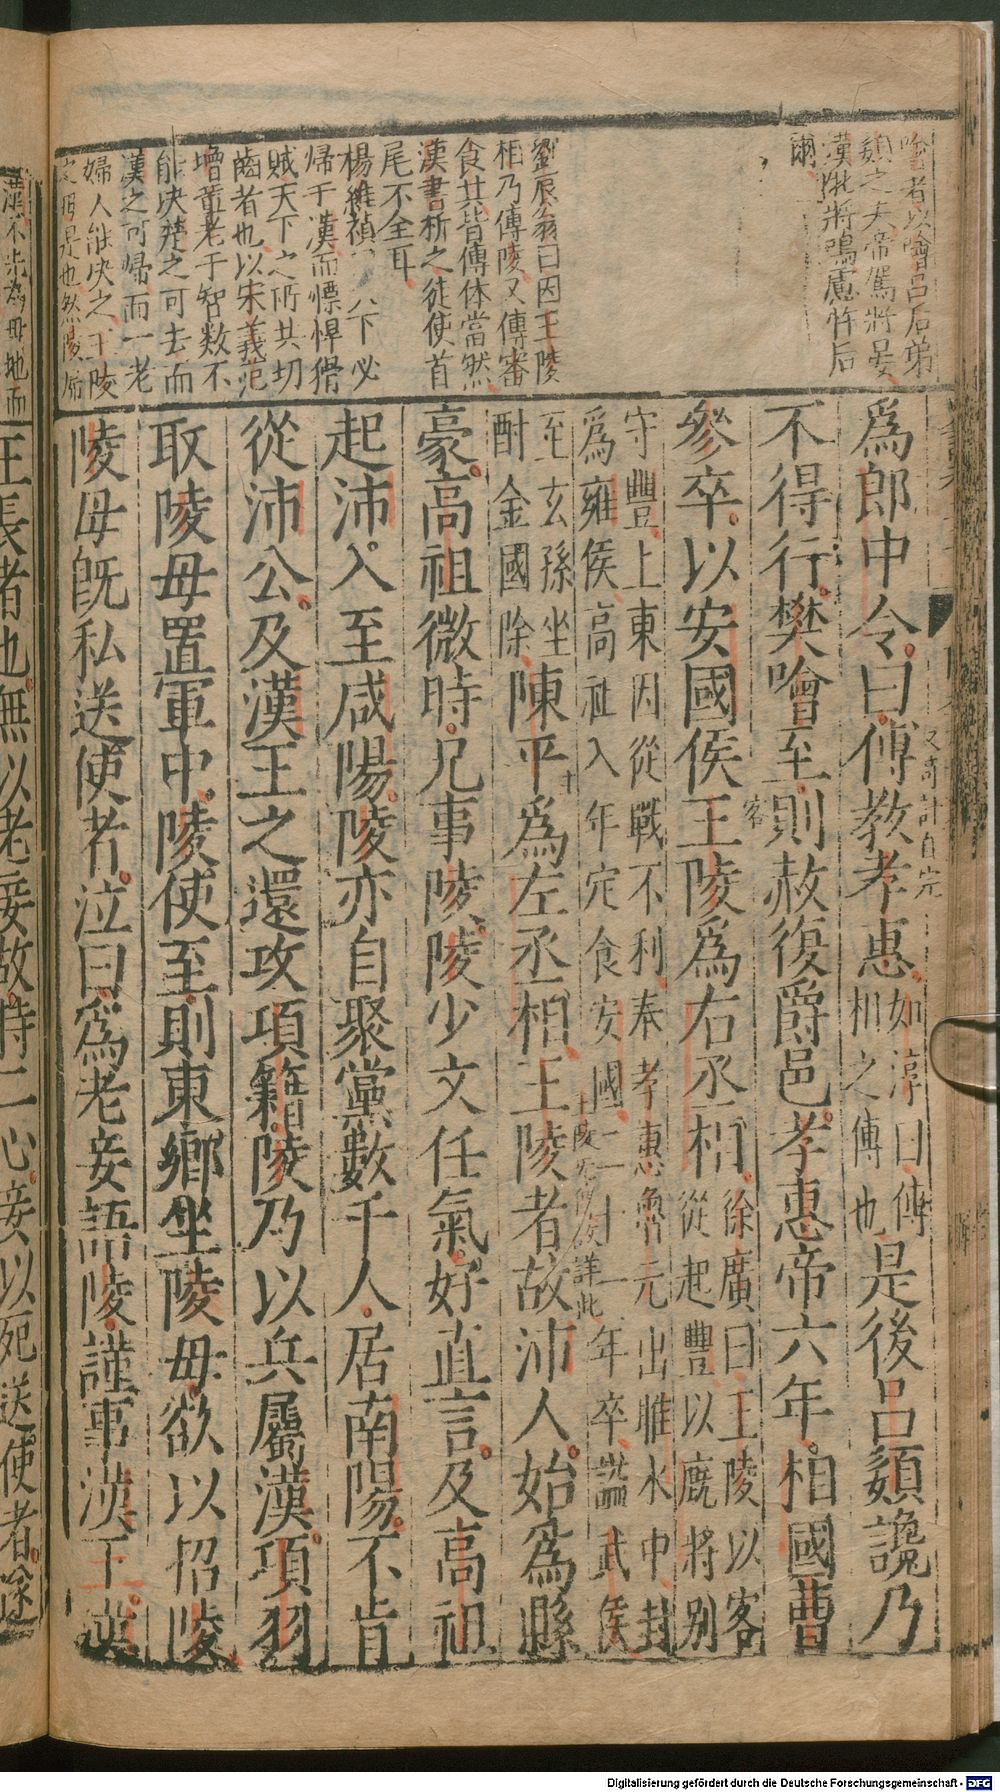 噲者以噲呂后弟
嬃之夫帝駕將晏
漢㧞將鴞慮忤后
爾
劉辰翁曰因王陵
相乃傳陵又傳審
食其皆傳体當然
漢書析之徒使首
尾不全耳
楊維禎 下必
歸于漢而慓悍猾
賊天下之所共切
齒者也以宋義范
增董老于智数不
能决楚之可去而
漢之可歸而一老
婦人能决之王陵
之母是也然陵歸
爲郎中令曰傅教孝惠如淳曰傅相之傅也是後呂嬃讒乃
又奇計自完
不得行樊噲至則赦復爵邑孝惠帝六年相國曹
參卒以安國侯王陵爲右丞相徐廣曰王陵以客從起豐以廐將别
客
守豐上東因從戰不利奉孝惠魯元出睢水中封
爲雍侯高祖入 年定食安國二十一年卒謚武侯
至玄孫坐
酎金國除陳平爲左丞相王陵者故沛人始爲縣
豪高祖微時兄事陵陵少文任氣好直言及高祖
起沛入至咸陽陵亦自聚黨數千人居南陽不肯
從沛公及漢王之還攻項籍陵乃以兵屬漢項羽
取陵母置軍中陵使至則東鄉坐陵母欲以招陵
陵母旣私送使者泣曰爲老妾語陵謹事漢王漢
王長者也無以老妾故持二心妾以死送使者遂
漢不先爲母地而
Digitalisierung gefördert durch die Deutsche Forschungsgemeinschaft - DFG